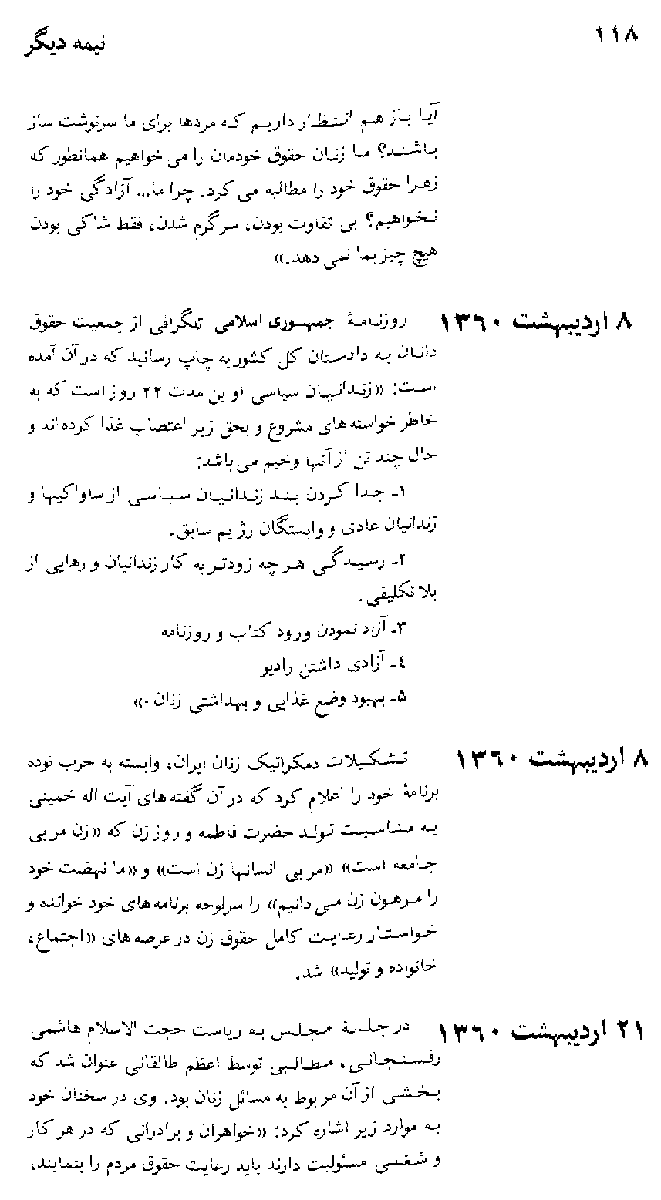 ۱۱۸
نیمه دیگر
آیا باز هم انتظار داریم که مردها برای ما سرنوشت ساز
باشند؟ ما زنان حقوق خودمان را می خواهیم همانطور که
زهرا حقوق خود را مطالبه می کرد. چرا ما... آزادگی خود را
نخواهیم؟ بی تفاوت بودن، سرگرم شدن، فقط شاکی بودن
هیچ چیز بما نمی دهد.»
۸ اردیبهشت ۱۳۶۰ روزنامهٔ جمهوری اسلامی تلگرافی از جمعیت حقوق
دانان به دادستان کل کشور به چاپ رسانید که در آن آمده
است: «زندانیان سیاسی اوین مدت ۲۲ روز است که به
خاطر خواسته های مشروع و بحق زیر اعتصاب غذا کرده اند و
حال چند تن از آنها وخیم می باشد:
۱ـ جدا کردن بند زندانیان سیاسی از ساواکیها و
زندانیان عادی و وابستگان رژیم سابق.
۲ـ رسیدگی هر چه زودتر به کار زندانیان و رهایی از
بلا تکلیفی.
۳ـ آزاد نمودن ورود کتاب و روزنامه
۴ـ آزادی داشتن رادیو
۵ـ بهبود وضع غذایی و بهداشتی زنان.»
۸ اردیبهشت ۱۳۶۰ تشکیلات دمکراتیک زنان ایران، وابسته به حزب توده
برنامهٔ خود را اعلام کرد که در آن گفته های آیت اله خمینی
به مناسبت تولد حضرت فاطمه و روز زن که «زن مربی
جامعه است» «مربی انسانها زن است» و «ما نهضت خود
را مرهون زن می دانیم» را سرلوحه برنامه های خود خوانده و
خواستار رعایت کامل حقوق زن در عرصه های «اجتماع،
خانواده و تولید» شد.
۲۱ اردیبهشت ۱۳۶۰ در جلسهٔ مجلس به ریاست حجت الاسلام هاشمی
رفسنجانی، مطالبی توسط اعظم طالقانی عنوان شد که
بخشی از آن مربوط به مسائل زنان بود. وی در سخنان خود
به موارد زیر اشاره کرد: «خواهران و برادرانی که در هر کار
و شغلی مسئولیت دارند باید رعایت حقوق مردم را بنمایند،